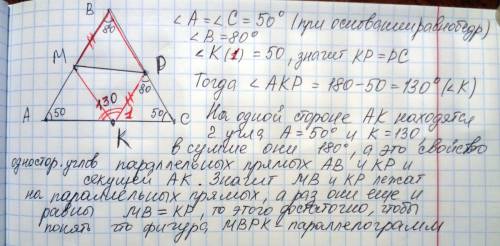 B
80
M
P
80
130
1
A
50
50
C
K
∠A = ∠C = 50° (при основании равнобедр)
∠B = 80°
∠K(1) = 50, значит KP = PC
Тогда ∠AKP = 180-50 = 130° (∠K)
На одной стороне AK находятся
2 угла, A = 50° и K = 130,
в сумме они 180°, а это свойство
одностор. углов параллельных прямых AB и KP и
секущей AK. Значит MB и KP лежат
на параллельных прямых, а раз они еще и
равны MB = KP, то этого достаточно, чтобы
понять что фигура MBPK - параллелограмм